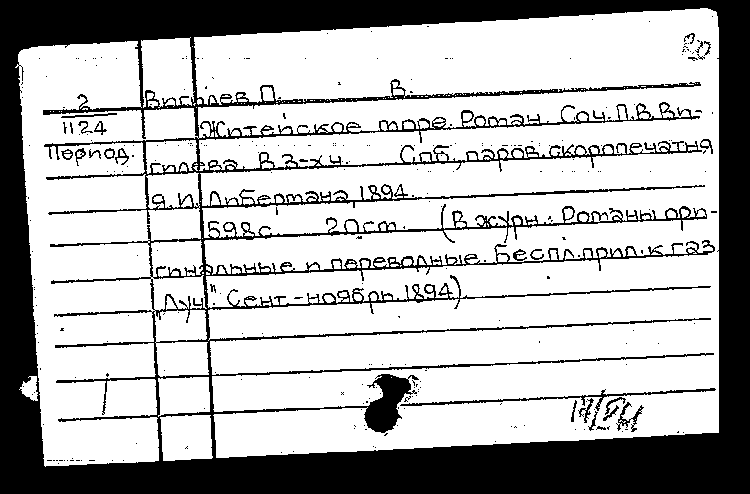 2
1124
Период.
Вигилев, П. В.
Житейское море. Роман. Соч. П.В. Ви-
гилева. В 3-х ч. Спб., паров. скоропечатня
Я.И. Либермана, 1894.
598 с. 20 см. (В журн.: Романы ори-
гинальные и переводные. Беспл. прил. к газ.
"Луч". Сент.-ноябрь 1894).